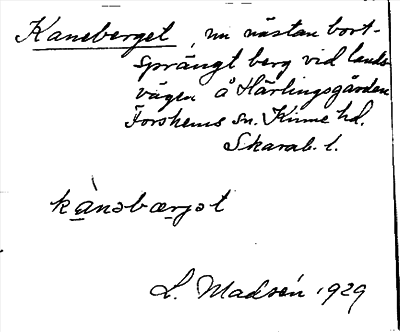 Kaneberget, nu nästan bort-
sprängt berg vid lands-
vägen å Härlingsgården
Forshems sn. Kinne hd.
Skarab. l.
kànəbærjət
L. Madsén 1929